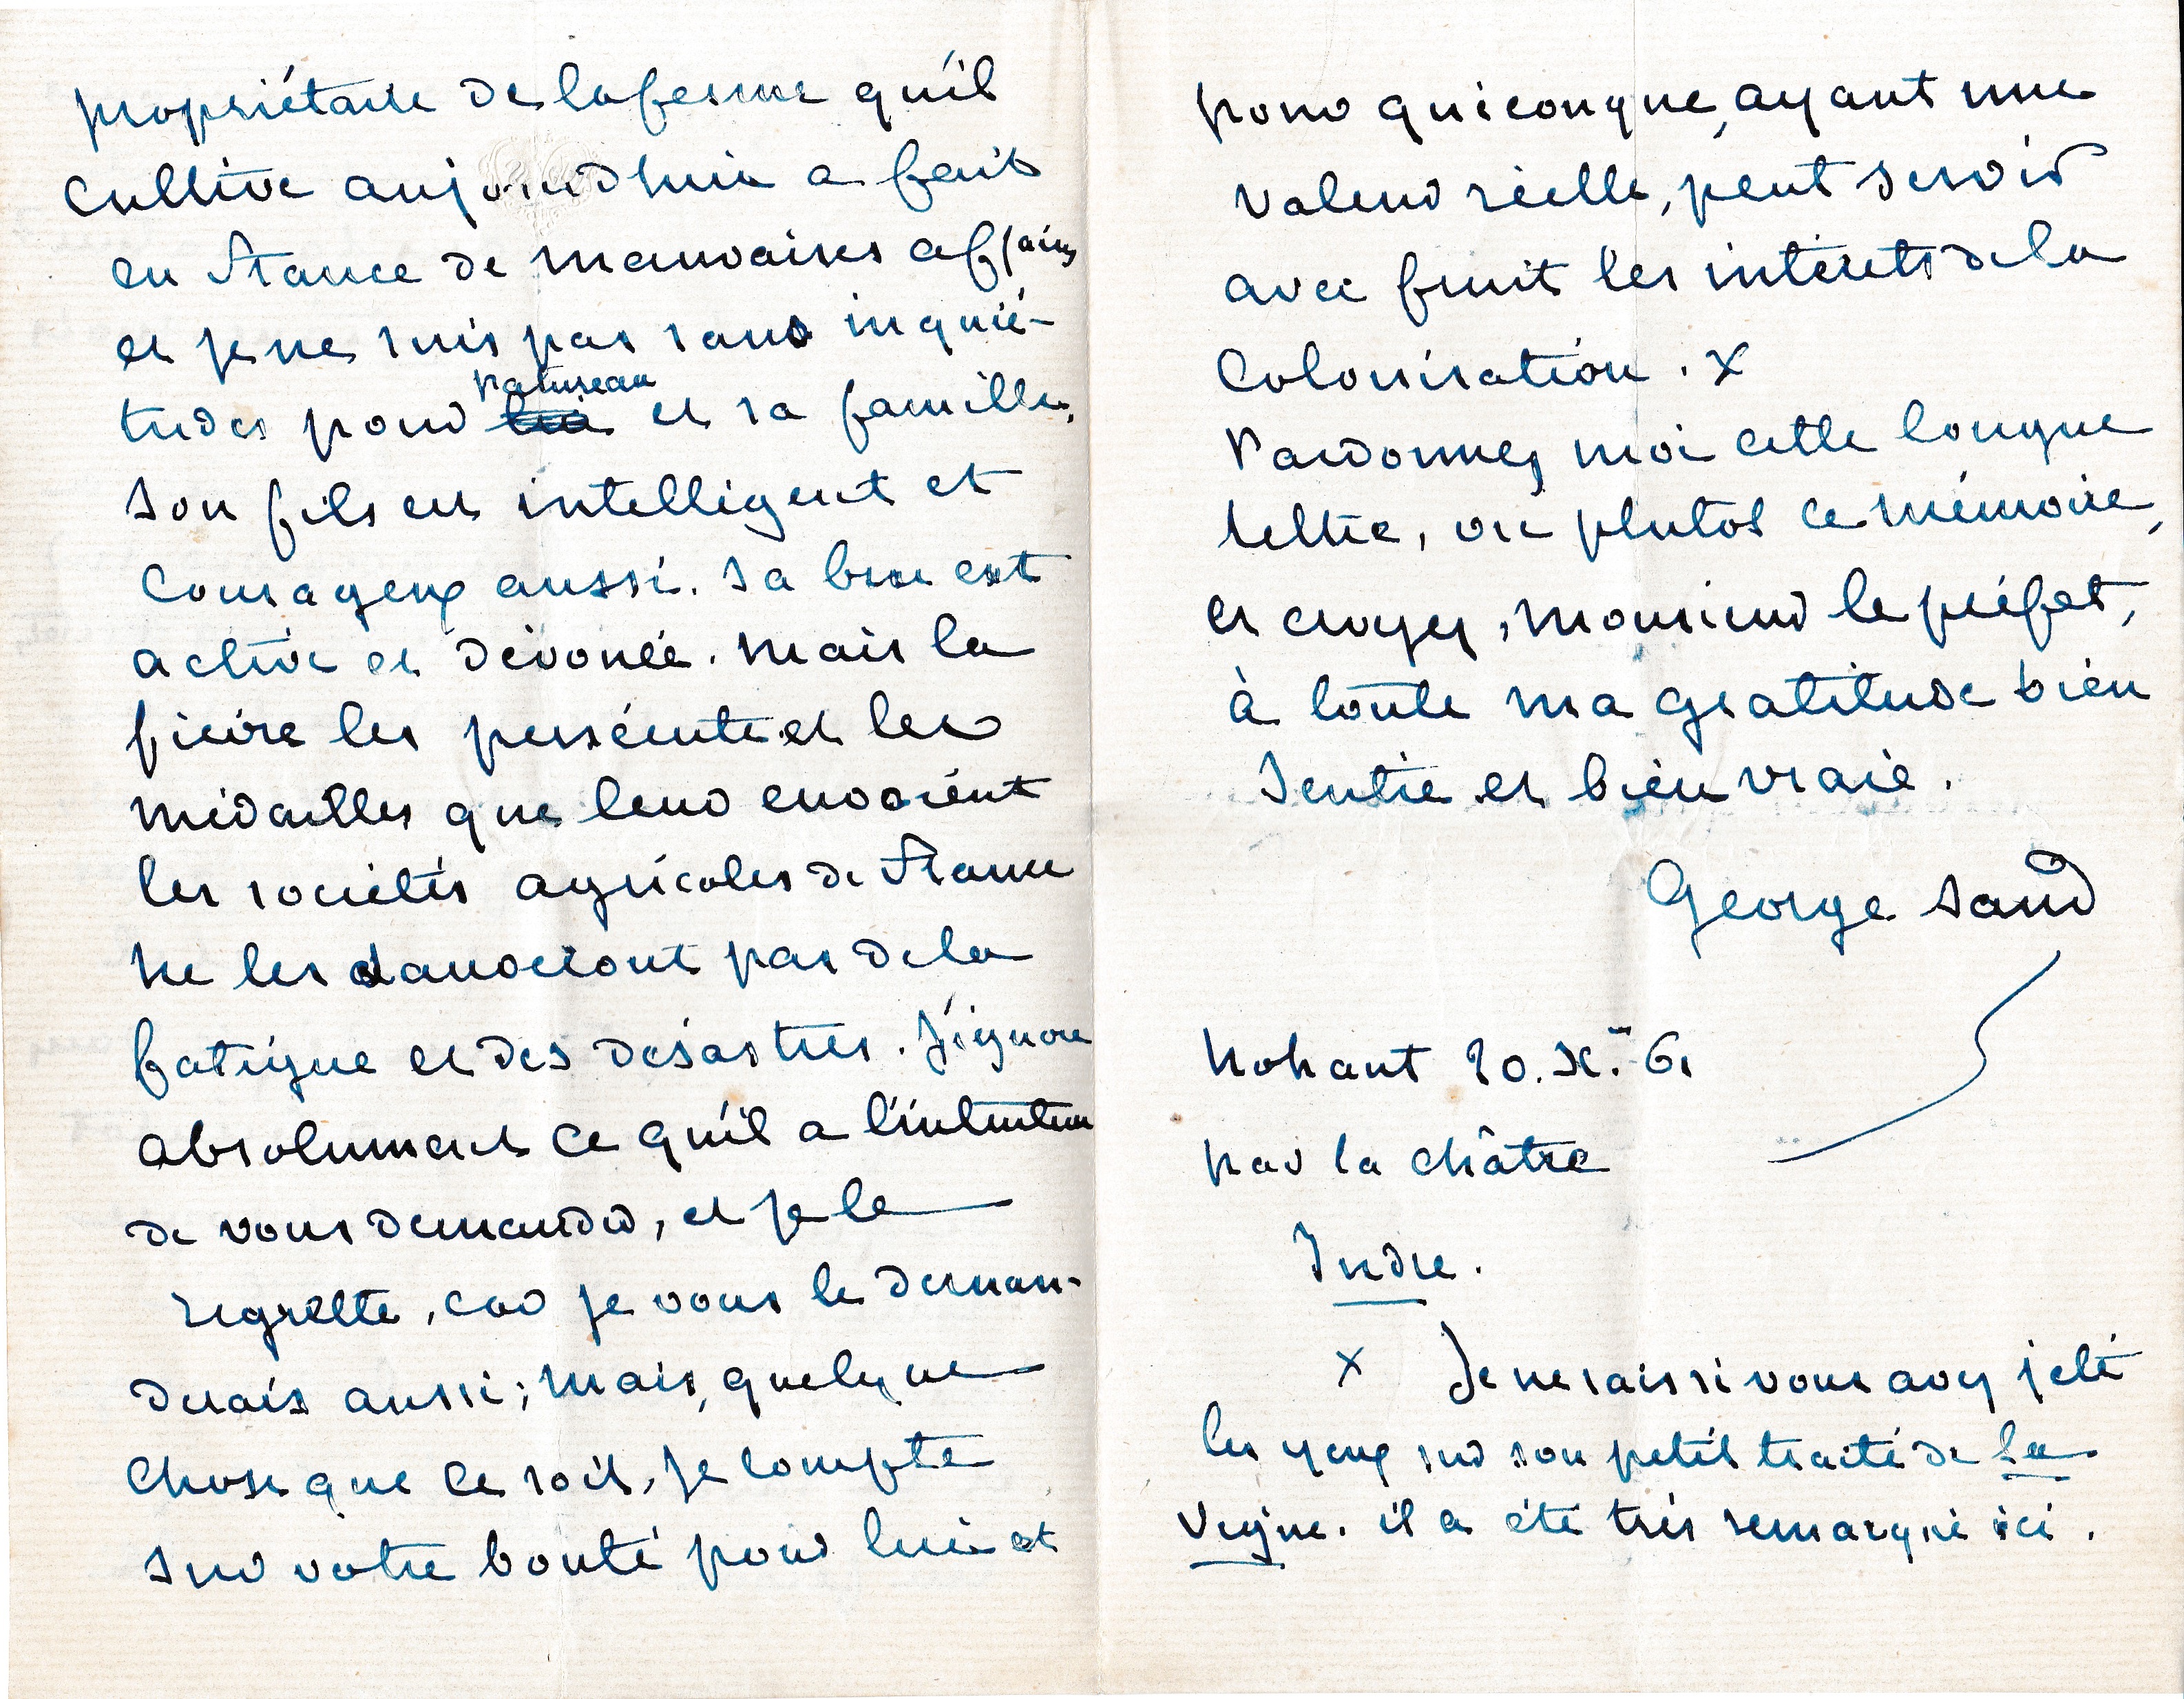 propriétaire de la ferme qu'il
cultive aujourd'hui a fait
en france de mauvaises affaires
et je ne suis pas sans inquié-
Patureau
tudes pour lui et sa famille.
Son fils est intelligent et
courageux aussi. Sa bru est
active et dévouée. Mais la
fièvre les persécute et les
médailles que leur envoient
les sociétés agricoles de france
ne les sauveront pas de la
fatigue et des désastres. J'ignore
absolument ce qu'il a l'intention
de vous demander, et je le
regrette, car je vous le deman-
derais aussi; mais, quelque
chose que ce soit, je compte
sur votre bonté pour lui et
pour quiconque, ayant une
valeur réelle, peut servir
avec fruit les intérêts de la
colonisation. x
Pardonnez moi cette longue
lettre, ou plutot ce mémoire,
et croyez, monsieur le préfet,
à toute ma gratitude bien
sentie et bien vraie.
George Sand
Nohant 20. Xbre 61
par la châtre
Indre.
x Je ne sais si vous avez jeté
les yeux sur son petit traité de la
vigne. il a été très remarqué ici.